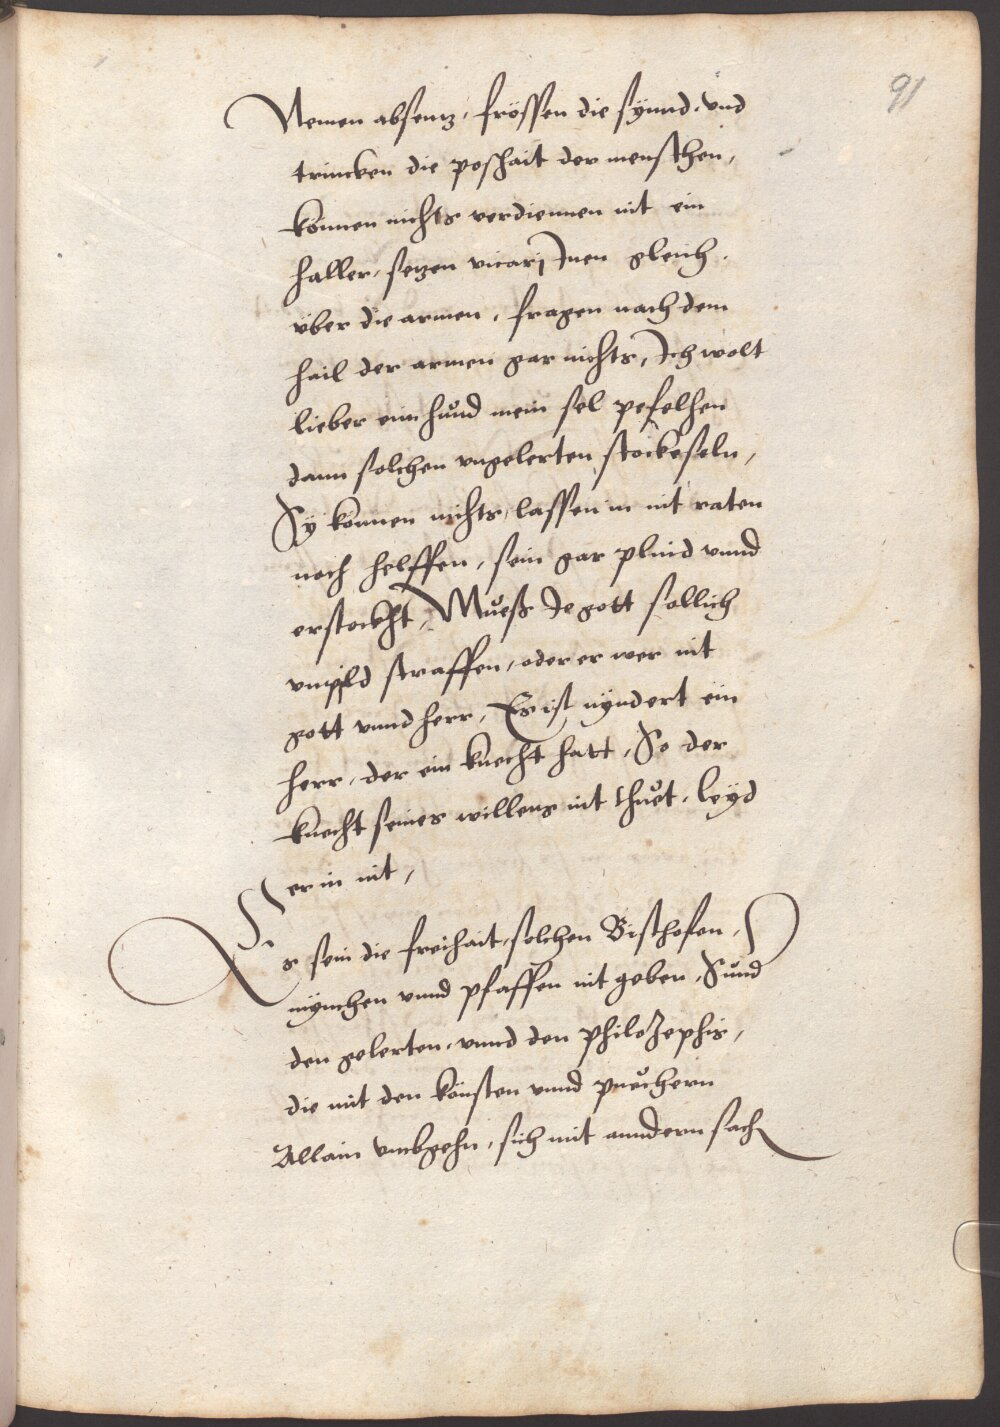 91
Nemen absentz, frössen die synnd, vnd
trincken die poshait der menschen,
können nichts verdiennen nit ein
haller, setzen vicarj Inen gleich.
über die armen, fragen nach dem
hail der armen gar nichts, Ich wolt
lieber eim hůnd mein sel pefelhen
dann solchen vngelerten stockeseln,
Sy können nichts, lassen in nit raten
noch helffen, sein gar plind vnnd
erstockht, Můeß Je gott sollich
vnpild straffen, oder er wer nit
gott vnnd herr, Es ist nyndert ein
herr, der ein knecht hatt, So der
knecht seines willens nit thůet, leyd
er in nit,
Es sein die freihait, solchen Bischofen,
mynchen vnnd pfaffen nit geben, Sůnd
den gelerten, vnnd den philozophis,
die mit den künsten vnnd půechern
Allain vmbgehn, sich mit anndern sach